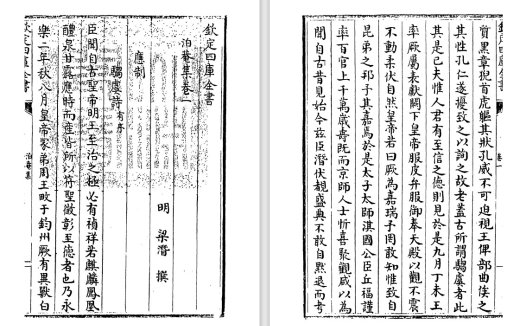 欽定四庫全書
泊菴集卷二
明 梁潛 撰
應制
騶虞詩有序
臣聞自古聖帝明王至治之極必有禎祥若麒麟鳳凰
醴泉甘露應時而產皆所以符聖徵彰至德者也乃永
樂二年秋八月皇帝家弟周王畋于鈞州厥有異獸白
欽定四庫全書
泊菴集
欽定四庫全書
質黑章猊首虎軀其狀孔威不可迫視王俾部曲俟之
其性孔仁遂擾致之以詢之故老蓋古所謂騶虞者此
其是已夫惟人君有至信之德則見於是九月丁未王
率厥屬表獻闕下皇帝服皮弁服御奉天殿以觀不震
不動柔伏自然皇帝若曰厥為嘉瑞予罔敢知惟致自
昆弟之邦予其嘉焉於是太子太師淇國公臣丘福謹
率百官上千萬歲壽既而京師人士忻喜聚觀咸以為
聞自古昔見始今茲臣潛伏覩盛典不敢自黙退而考